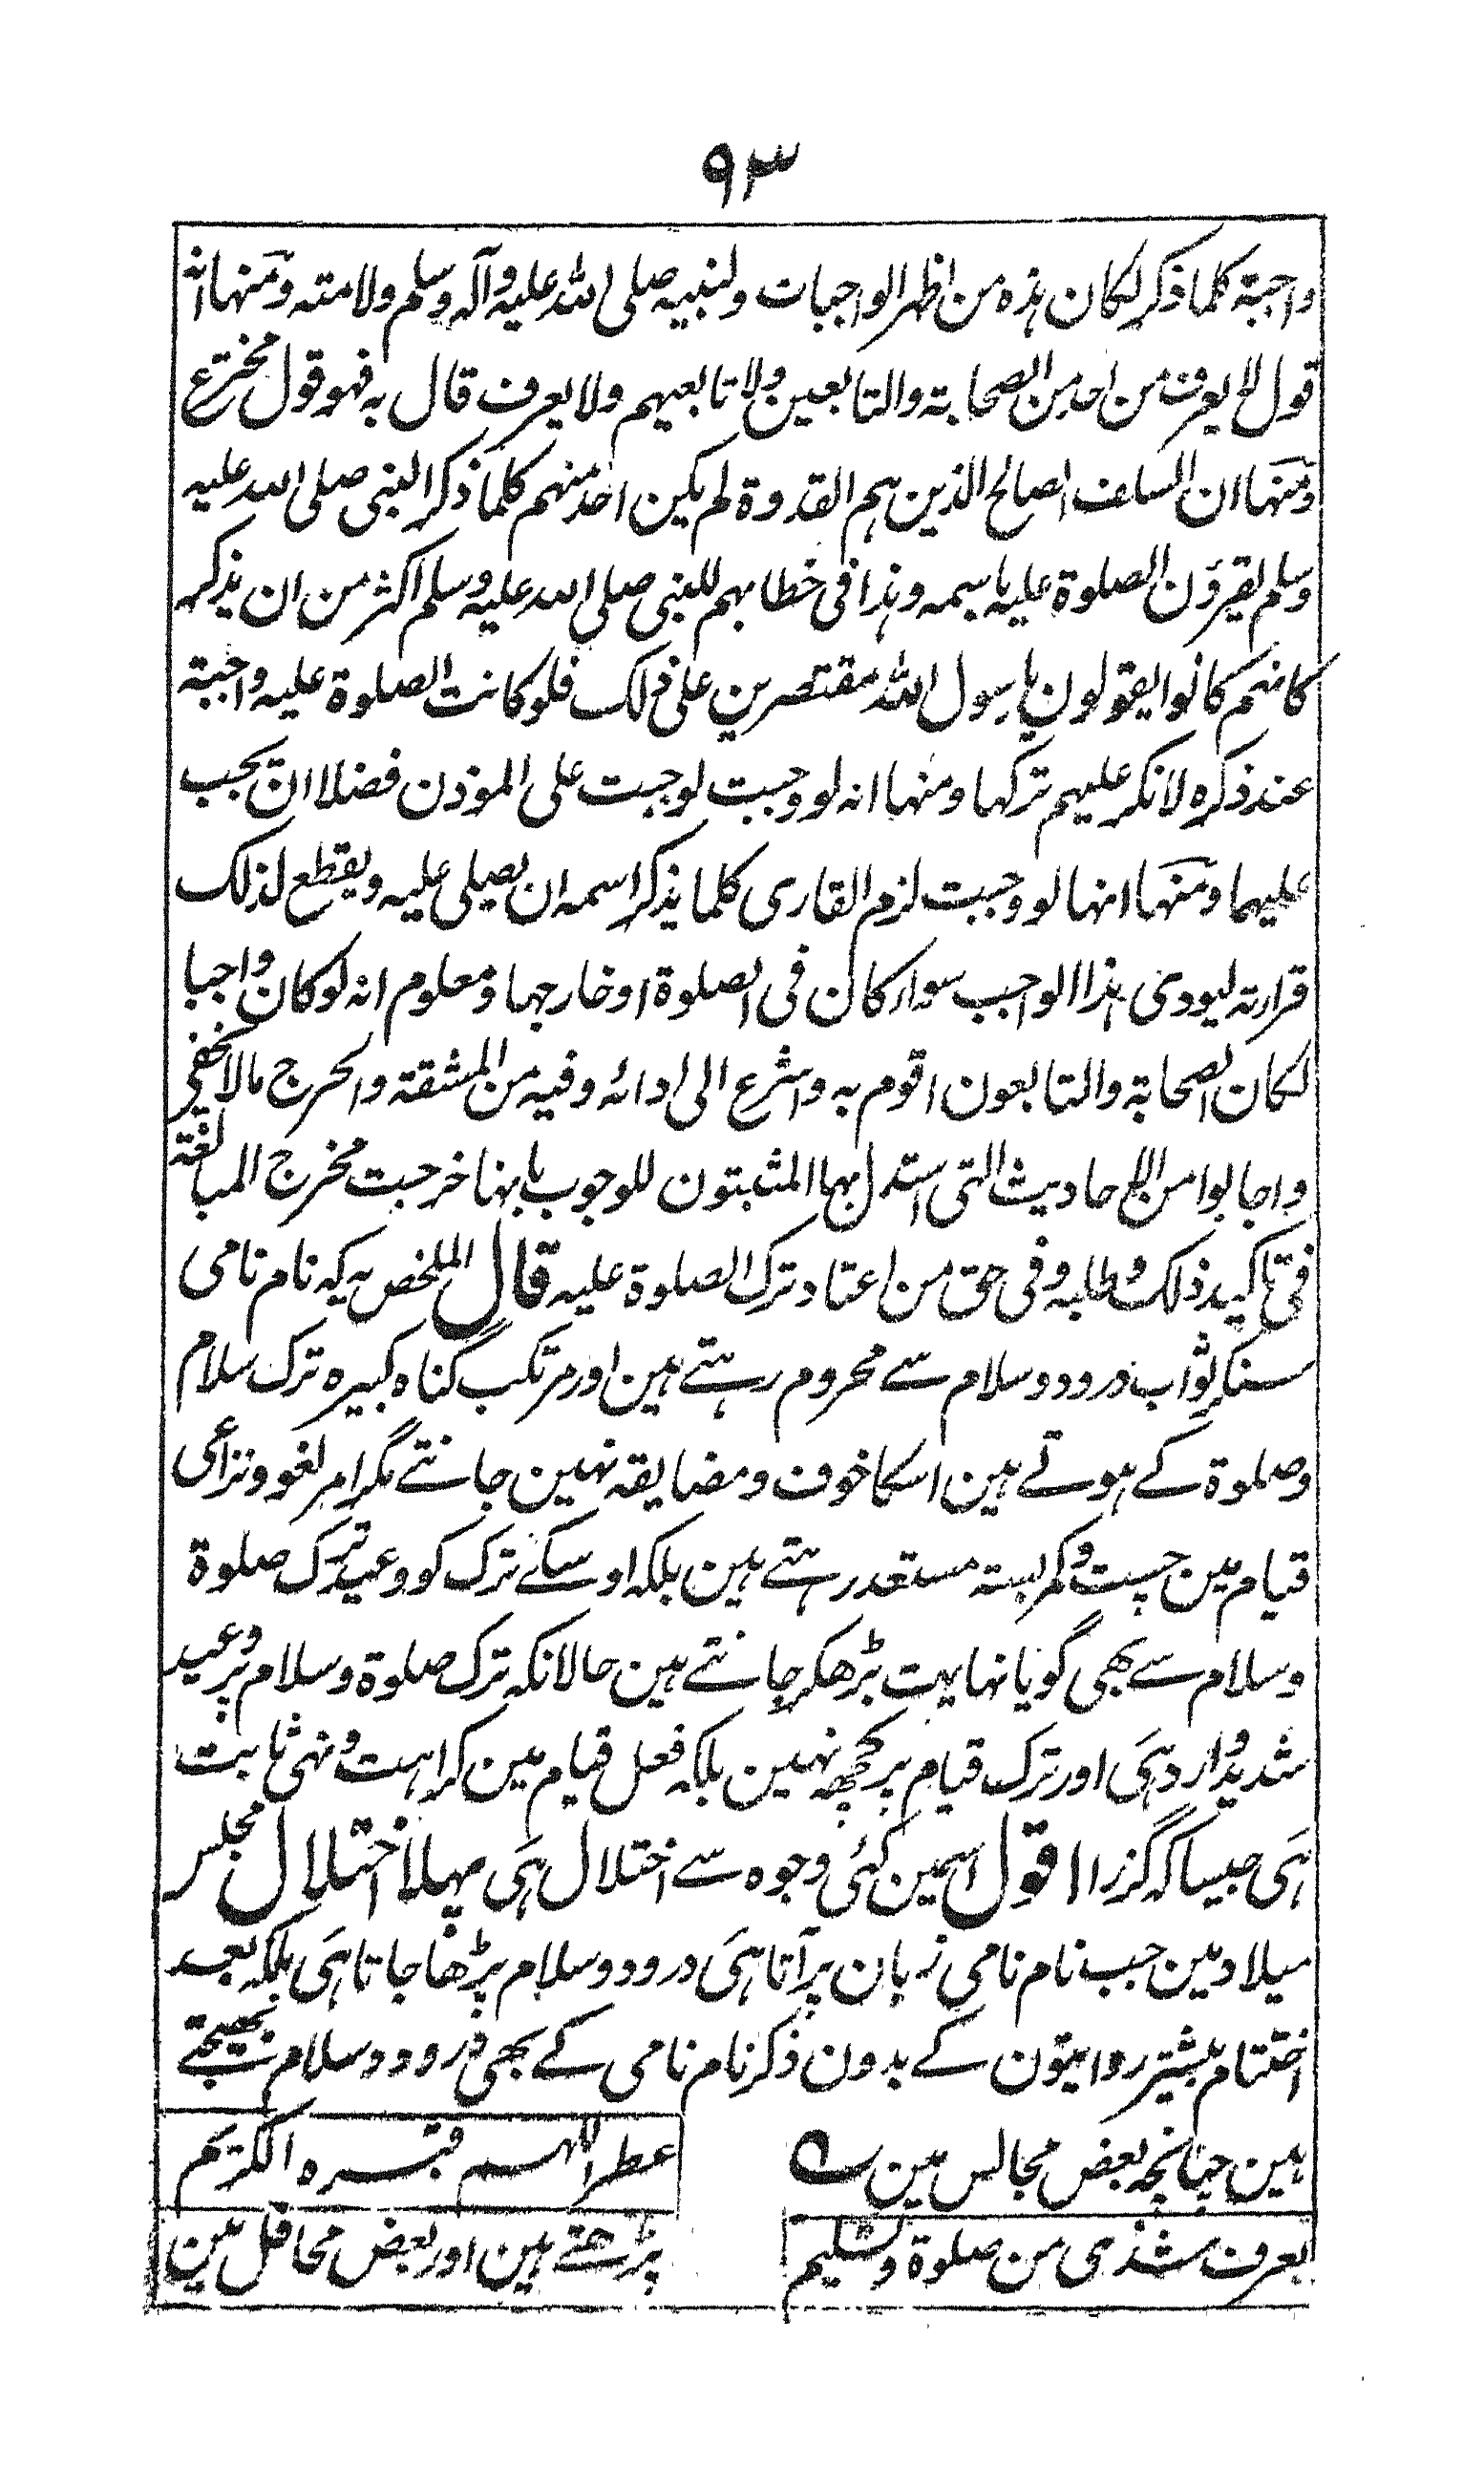 ۹۳
واجبة کلما ذکر لکان ہذہ من اظہر الواجبات ولنبیہ صلی اللہ علیہ وآلہ وسلم ولامتہ ومنہا انہ
قول لا یعرف من احد من الصحابة والتابعین ولا تابعیہم ولا یعرف قال بہ فہو قول مخترع
ومنہا ان السلف الصالح الذین ہم القدوة لم یکن احد منہم کلما ذکر النبی صلی اللہ علیہ
وسلم یقرؤن الصلوة علیہ باسمہ وہذا فی خطابہم للنبی صلی اللہ علیہ وسلم اکثر من ان یذکر
کانہم کانوا یقولون یا رسول اللہ مقتصرین علی ذلک فلو کانت الصلوة علیہ واجبة
عند ذکرہ لانکر علیہم ترکہا ومنہا انہ لو وجبت لوجبت علی الموذن فضلا ان تجب
علیہما ومنہا انہا لو وجبت لزم القاری کلما یذکر اسمہ ان یصلی علیہ ویقطع لذلک
قراءتہ لیودی ہذا الواجب سواء کان فی الصلوة او خارجہا ومعلوم انہ لو کان واجبا
لکان الصحابة والتابعون اقوم بہ واشرع الی ادائہ وفیہ من المشقة والحرج مالا یخفی
واجابوا من الاحادیث التی استدل بہا المثبتون للوجوب بانہا خرجت مخرج المبالغة
فی تاکید ذلک وطلبہ وفی حق من اعتاد ترک الصلوة علیہ قال الملخص یہ کہ نام نامی
سنکر ثواب درود و سلام سے محروم رہتے ہین اور مرتکب گناہ کبیرہ ترک سلام
وصلوة کے ہوتے ہین اسکا خوف و مضایقہ نہین جانتے مگر امر لغو و نزاعی
قیام مین چست و کمربستہ مستعد رہتے ہین بلکہ اوسکے ترک کو وعید ترک صلوة
وسلام سے بھی گویا نہایت بڑھکر جانتے ہین حالانکہ ترک صلوة وسلام پر وعید
شدید وارد ہی اور ترک قیام پر کچھہ نہین بلکہ فعل قیام مین کراہت و نہی ثابت
ہی جیسا کہ گزرا اقول اسمین کئی وجوہ سے اختلال ہی پہلا اختلال مجلس
میلاد مین جب نام نامی زبان پر آتا ہی درود و سلام پڑھا جاتا ہی بلکہ بعد
اختتام بیشتر روایتون کے بدون ذکر نام نامی کے بھی درود و سلام بھیجتے
ہین چنانچہ بعض مجالس مین ؎ عطر اللہم قبرہ الکریم
بعرف شذی من صلوة وتسلیم پڑھتے ہین اور بعض محافل مین